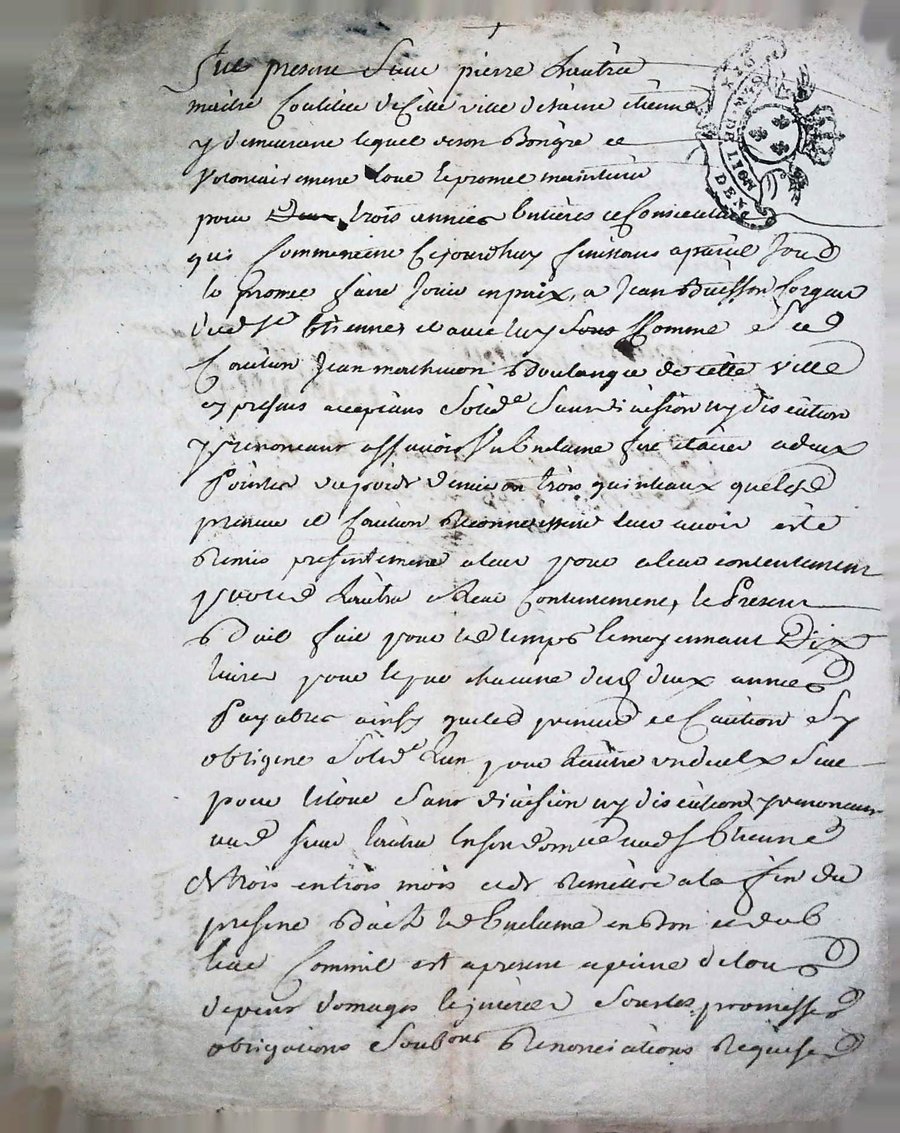 fut present Sieur pierre
maitre Coutelier de Cette ville de Saint étienne
y demeurant lequel de son Bongré et
Volontairement loue et promet maintenir
pour Deux trois années Entières et Consecutives
qui Commencent Cejourdhuy finissant a pareil Jour
Et promet faire Jouir en paix, a Jean Buisson forgeur
dud St Etienne et avec luy Sous Comme Sud
Caution Jean mathicon Boulanger de cette Ville
cy presens acceptans Solidt Sans division ny discution
y renoncant assavoir Une Enclume a deux
pointes du poids denviron trois quinteaux quelsd
preneur et Caution Reconnoissent leur avoir esté
Remis presentement a leur contentement
Contentement, le Present
Bail fait pour led temps et moyennant Dix
livres pour chacune desd deux années
Payables ainsy quelesd preneur et Caution Sy
obligent Solidt Lun pour Lautre un deux Seul
pour letout Sans division ny discution y renoncant
aud Sieur En son domicile aud St Etienne
de trois en trois mois et de Remettre a la fin du
present Bail lad Enclume en Bon
Comme est a present a peine de tous
depens domages Sous les promesses
obligations Soubons Renonciations Requises
DE LYON
DEN